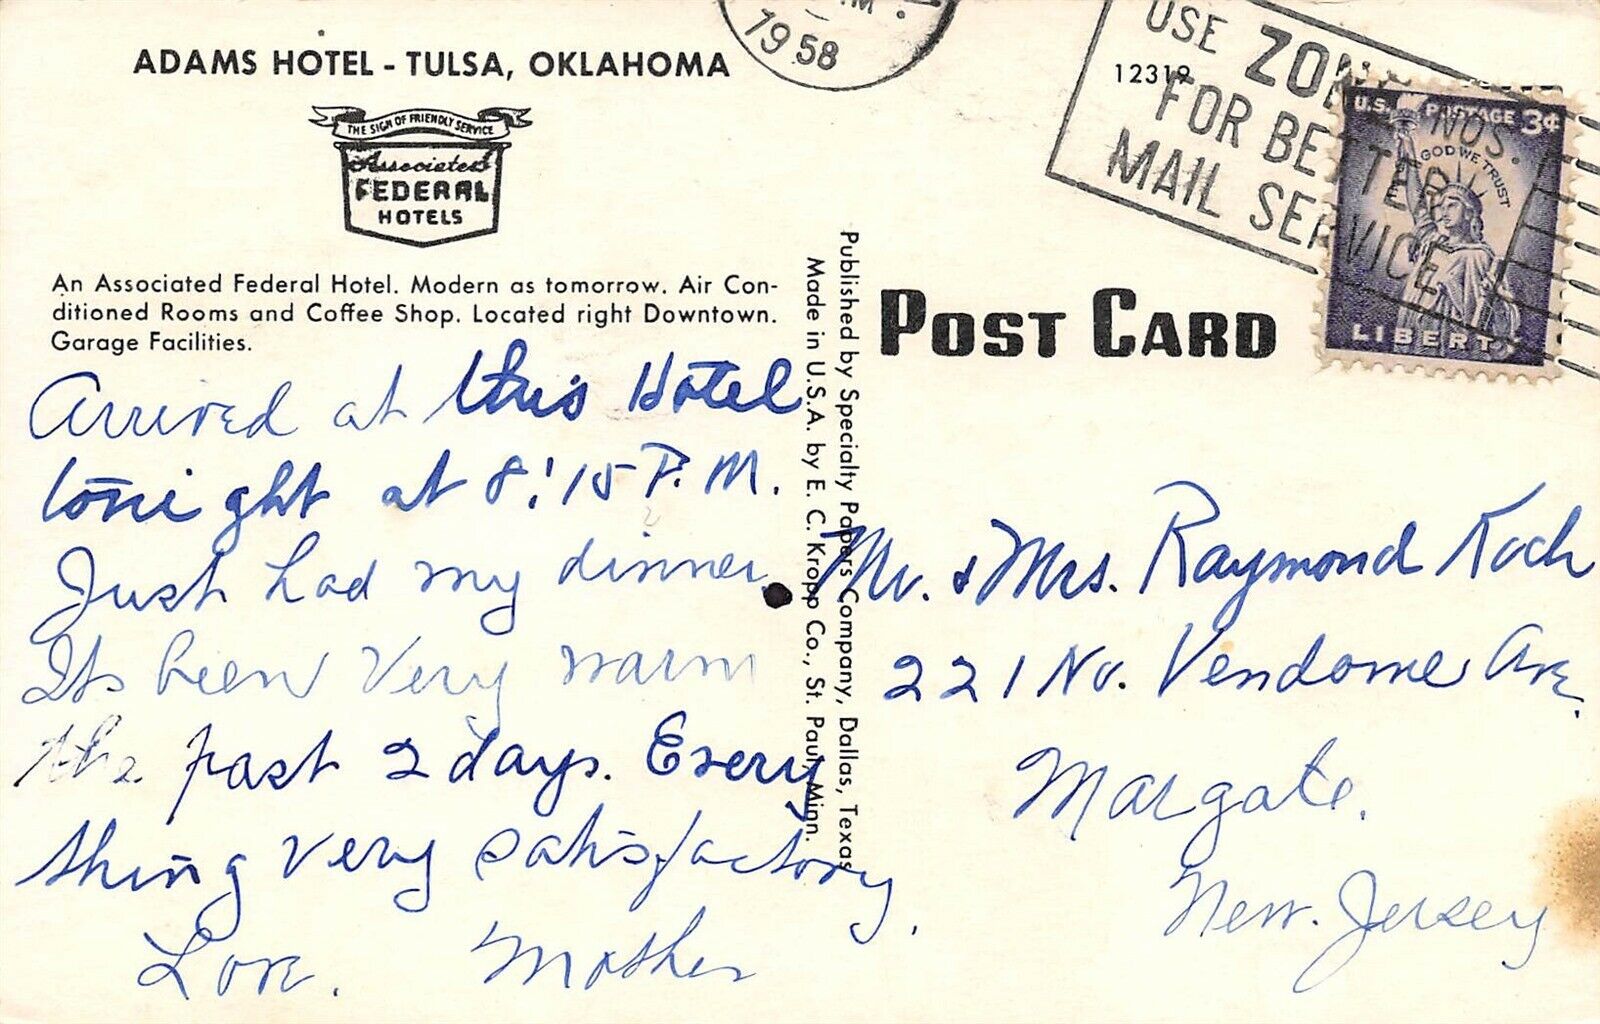 ADAMS HOTEL - TULSA, OKLAHOMA
THE SIGN OF FRIENDLY SERVICE
Associated
FEDERAL
HOTELS
An Associated Federal Hotel. Modern as tomorrow. Air Con-
ditioned Rooms and Coffee Shop. Located right Downtown.
Garage Facilities.
Arrived at this Hotel
tonight at 8:15 P.M.
Just had my dinner
Its been very warm
the past 2 days. Every
thing very satisfactory.
Love. Mother
Published by Specialty Papers Company, Dallas, Texas
Made in U.S.A. by E. C. Kropp Co., St. Paul, Minn.
1958
USE ZONE NOS.
FOR BETTER
MAIL SERVICE
12319
U.S. POSTAGE 3¢
IN GOD WE TRUST
LIBERTY
POST CARD
Mr. & Mrs. Raymond Koch
221 No. Vendome Ave.
Margate.
New. Jersey